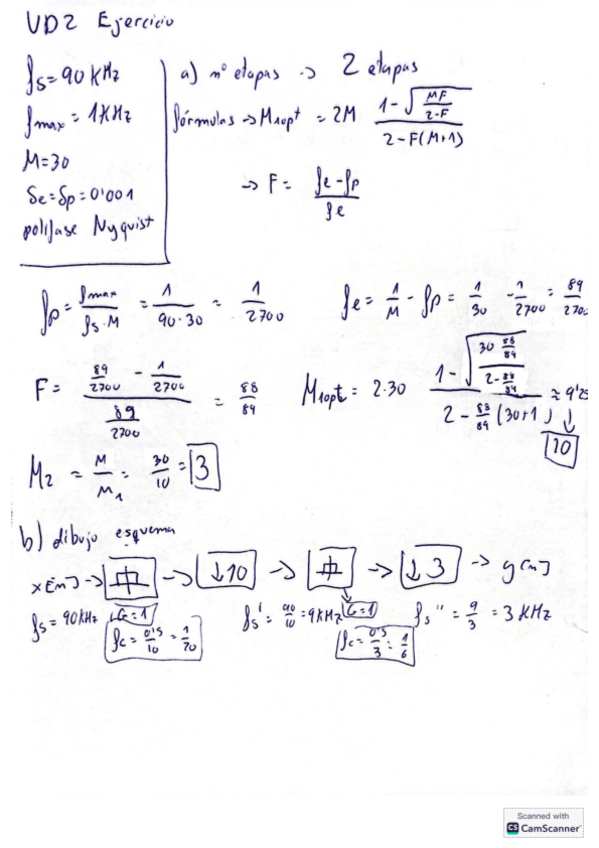 UD2 Ejercicio
fs = 90 KHz
fmax = 1KHz
M = 30
δe = δp = 0'001
polifase Nyquist
a) nº etapas -> 2 etapas
fórmulas -> M1opt = 2M (1 - √(MF/(2-F))) / (2 - F(M+1))
-> F = (fe - fp) / fe
fp = fmax / (fs·M) = 1 / (90·30) = 1/2700
fe = 1/M - fp = 1/30 - 1/2700 = 89/2700
F = (89/2700 - 1/2700) / (89/2700) = 88/89
M1opt = 2·30 (1 - √((30 88/89)/(2 - 88/89))) / (2 - 88/89 (30+1)) ≈ 9'25
10
M2 = M/M1 = 30/10 = 3
b) dibujo esquema
x[n] -> -> ↓10 -> -> ↓3 -> y[n]
fs = 90KHz G=1 fs' = 90/10 = 9KHz G=1 fs'' = 9/3 = 3 KHz
fc = 0'5/10 = 1/20 fc = 0'5/3 = 1/6
Scanned with
CS CamScanner